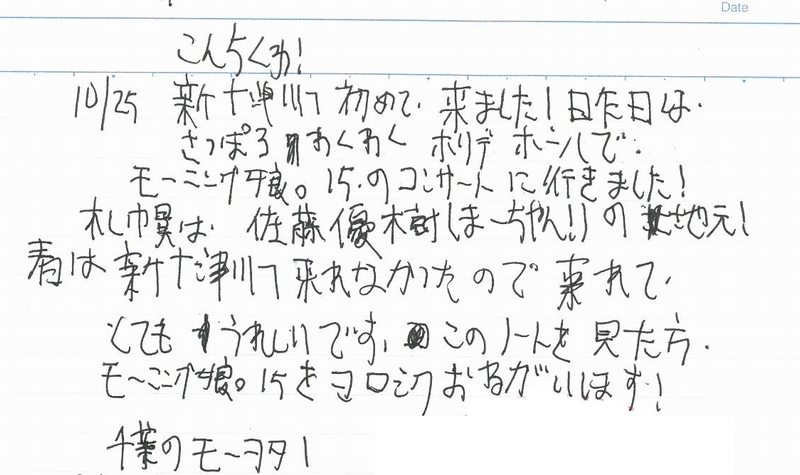 Date
こんちくわ!
10/25 新十津川て 初めて 来ました! 日昨日は.
さっぽろ わくわく ホリデーホールで.
モーニング娘。15.のコンサートに行きました!
札幌は. 佐藤優樹(まーちゃん!!)の 地元!
春は新十津川て来れなかったので 来れて
とても うれしいです. このノートを見た方.
モーニング娘。15をヨロシクおねがいします!
千葉のモーヲタ1